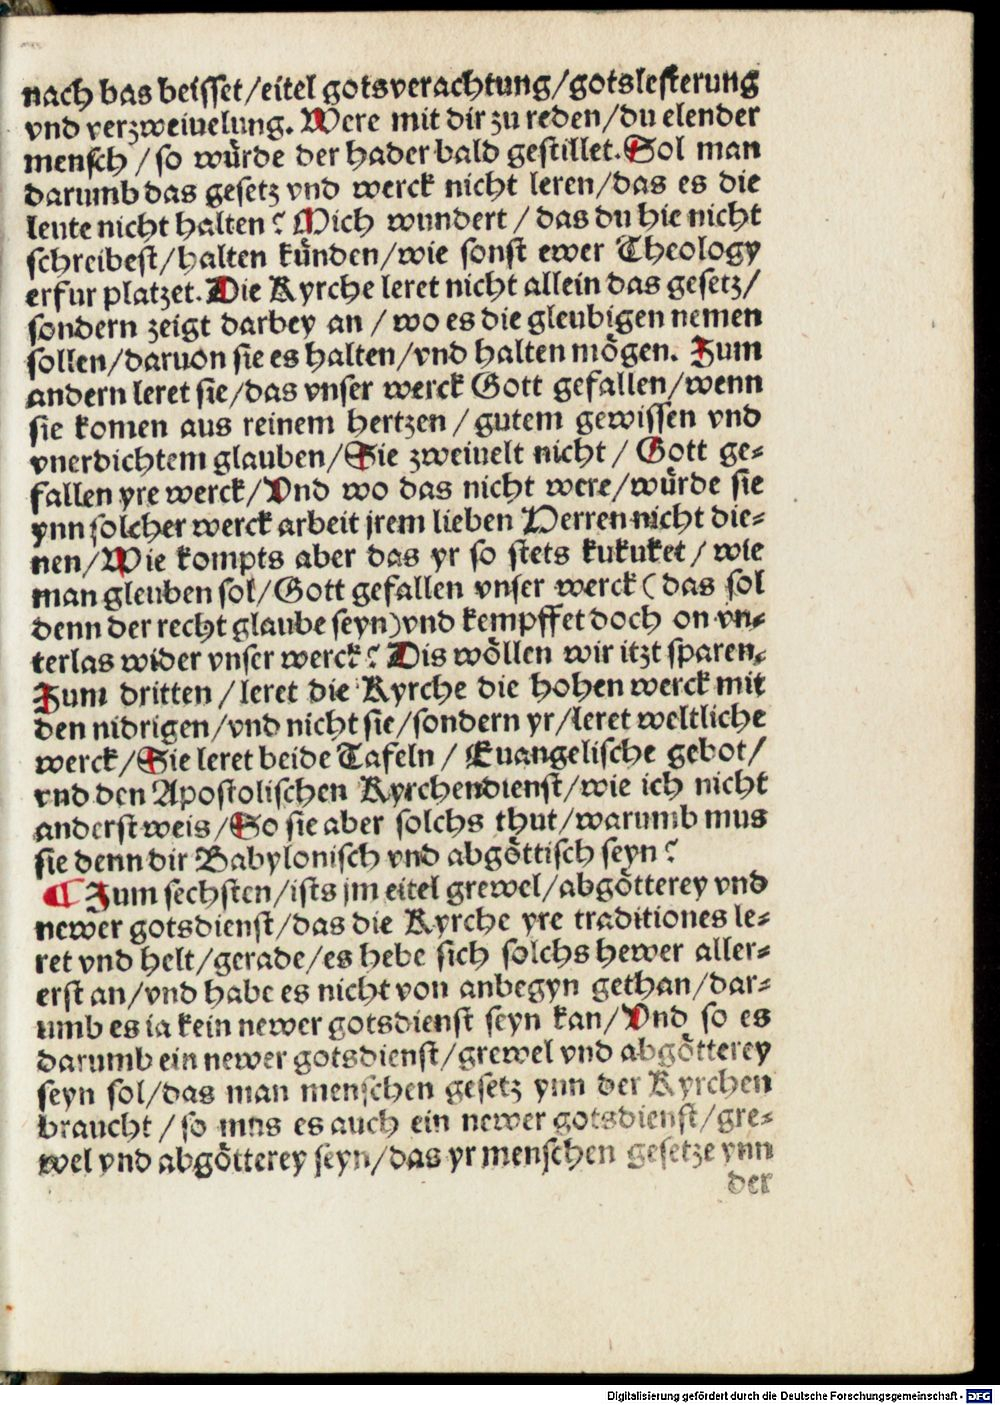 nach bas beisset/eitel gotsverachtung/gotslesterung
vnd verzweiuelung. Were mit dir zu reden/du elender
mensch/so würde der hader bald gestillet. Sol man
darumb das gesetz vnd werck nicht leren/das es die
leute nicht halten? Mich wundert/das du hie nicht
schreibest/halten künden/wie sonst ewer Theology
erfur platzet. Die Kyrche leret nicht allein das gesetz/
sondern zeigt darbey an/wo es die gleubigen nemen
sollen/daruon sie es halten/vnd halten mögen. Zum
andern leret sie/das vnser werck Gott gefallen/wenn
sie komen aus reinem hertzen/gutem gewissen vnd
vnerdichtem glauben/Sie zweiuelt nicht/Gott ge-
fallen yre werck/Vnd wo das nicht were/würde sie
ynn solcher werck arbeit jrem lieben Herren nicht die-
nen/Wie kompts aber das yr so stets kukuket/wie
man gleuben sol/Gott gefallen vnser werck(das sol
denn der recht glaube seyn)vnd kempffet doch on vn-
terlas wider vnser werck? Dis wöllen wir itzt sparen.
Zum dritten/leret die Kyrche die hohen werck mit
den nidrigen/vnd nicht sie/sondern yr/leret weltliche
werck/Sie leret beide Tafeln/Euangelische gebot/
vnd den Apostolischen Kyrchendienst/wie ich nicht
anderst weis/So sie aber solchs thut/warumb mus
sie denn dir Babylonisch vnd abgöttisch seyn?
¶ Zum sechsten/ists jm eitel grewel/abgötterey vnd
newer gotsdienst/das die Kyrche yre traditiones le-
ret vnd helt/gerade/es hebe sich solchs hewer aller-
erst an/vnd habe es nicht von anbegyn gethan/dar-
umb es ia kein newer gotsdienst seyn kan/Vnd so es
darumb ein newer gotsdienst/grewel vnd abgötterey
seyn sol/das man menschen gesetz ynn der Kyrchen
braucht/so mus es auch ein newer gotsdienst/gre-
wel vnd abgötterey seyn/das yr menschen gesetze ynn
der
Digitalisierung gefördert durch die Deutsche Forschungsgemeinschaft - DFG